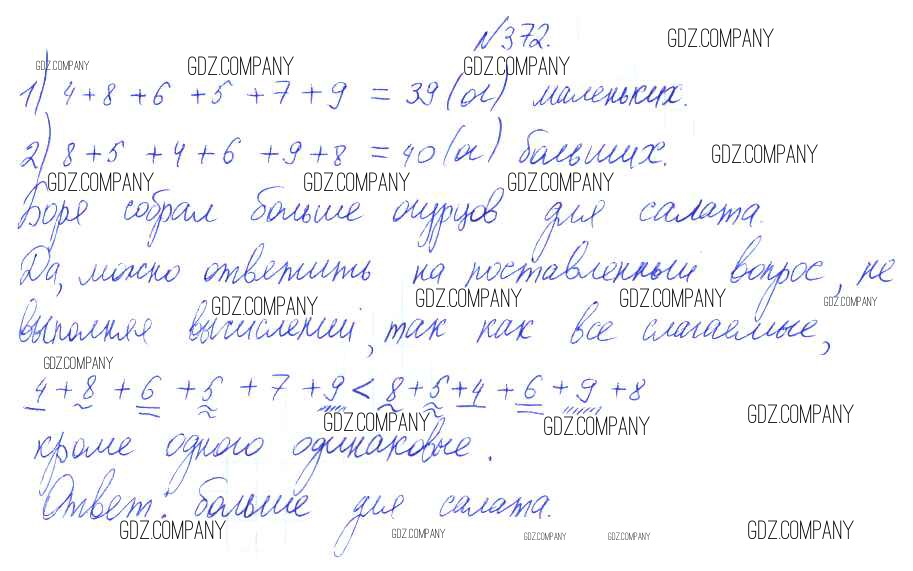 №372.
GDZ.COMPANY
GDZ.COMPANY GDZ.COMPANY GDZ.COMPANY
1) 4+8+6+5+7+9 = 39 (ог) маленьких.
2) 8+5+4+6+9+8 = 40 (ог) больших.
GDZ.COMPANY
GDZ.COMPANY GDZ.COMPANY GDZ.COMPANY
Боря собрал больше огурцов для салата.
Да, можно ответить на поставленный вопрос, не
GDZ.COMPANY GDZ.COMPANY GDZ.COMPANY GDZ.COMPANY
выполняя вычислений, так как все слагаемые,
GDZ.COMPANY
4+8+6+5+7+9 < 8+5+4+6+9+8
GDZ.COMPANY GDZ.COMPANY GDZ.COMPANY
кроме одного одинаковые.
Ответ: больше для салата.
GDZ.COMPANY GDZ.COMPANY GDZ.COMPANY GDZ.COMPANY GDZ.COMPANY